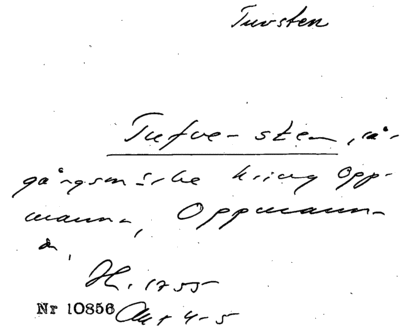 Tuvsten
Tufve-sten, rå-
gångsmärke kring Opp-
manna, Oppmanna
sn.
H. 1755
Nr 10856 Akt 4-5